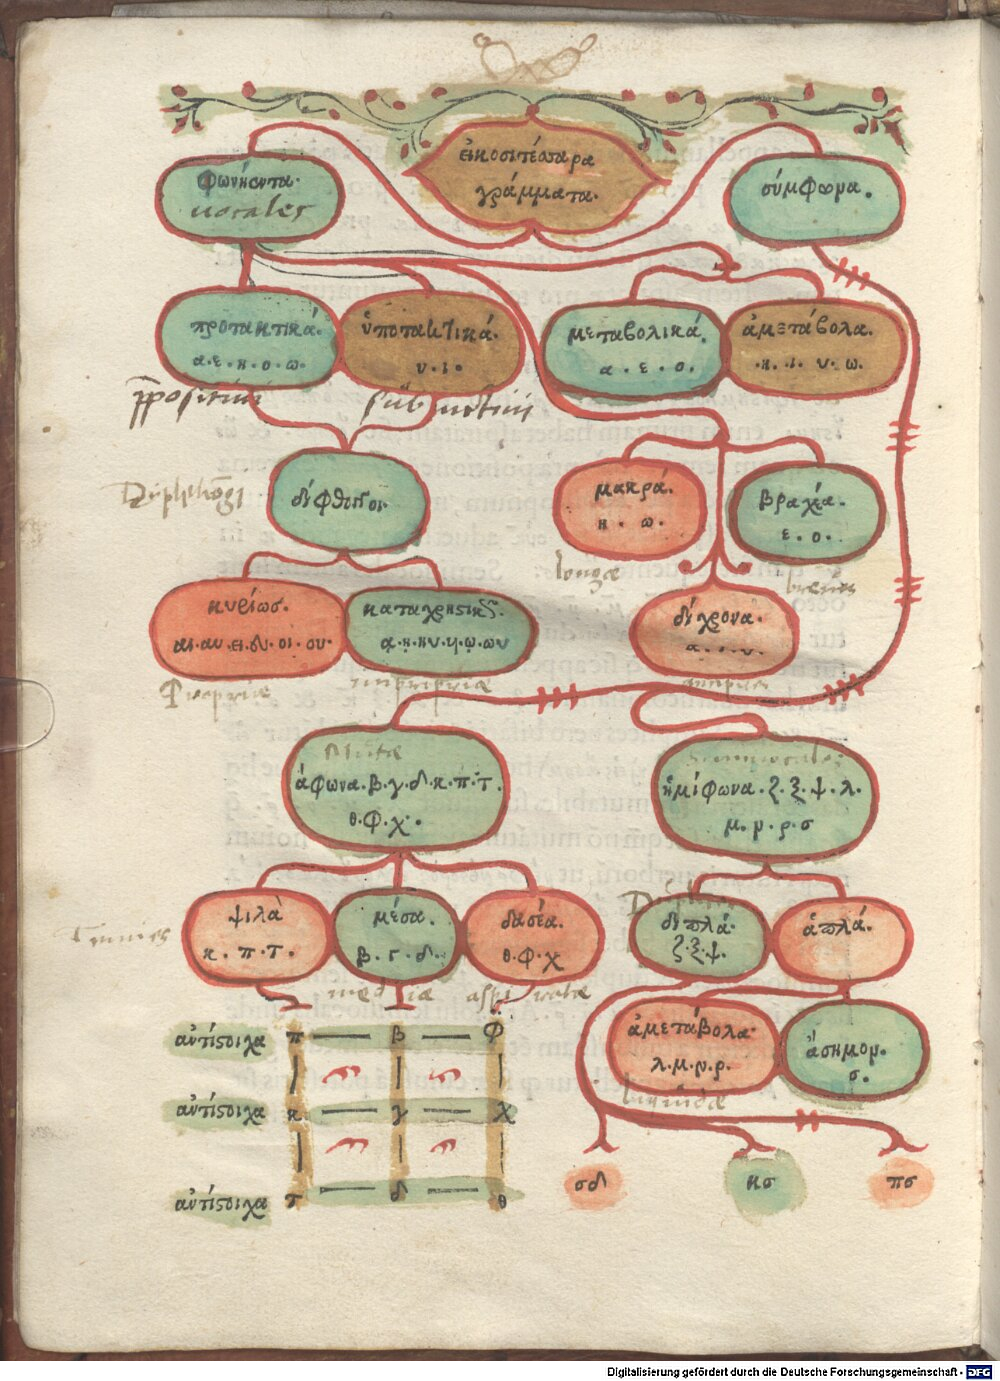 εἰκοσιτέσσαρα
γράμματα.
φωνήεντα.
vocales
σύμφωνα.
προτακτικά.
α·ε·η·ο·ω.
ὑποτακτικά.
υ·ι·
μεταβολικά.
α·ε·ο.
ἀμετάβολα.
η·ι·υ·ω.
δίφθογγοι
μακρά.
η·ω.
βραχέα.
ε·ο.
longæ
breues
κυρίωσ.
αι·αυ·ει·ευ·οι·ου·
καταχρηστικῶς
ᾳ·ῃ·ηυ·υι·ῳ·ωυ
δίχρονα.
α·ι·υ.
Propriæ
impropriæ
Mutæ
ἄφωνα·β·γ·δ·κ·π·τ·
θ·φ·χ·
ἡμίφωνα·ζ·ξ·ψ·λ·
μ·ν·ρ·σ
ψιλὰ
κ·π·τ·
μέσα.
β·γ·δ·
δασέα.
θ·φ·χ
διπλά·
ζ·ξ·ψ·
ἁπλά.
Tenues
mediæ
aspiratæ
ἀμετάβολα·
λ·μ·ν·ρ·
ἄσημον.
σ·
liquidæ
ἀντίστοιχα π β φ
ἀντίστοιχα κ γ χ
ἀντίστοιχα τ δ θ
σδ κσ πσ
Digitalisierung gefördert durch die Deutsche Forschungsgemeinschaft - DFG